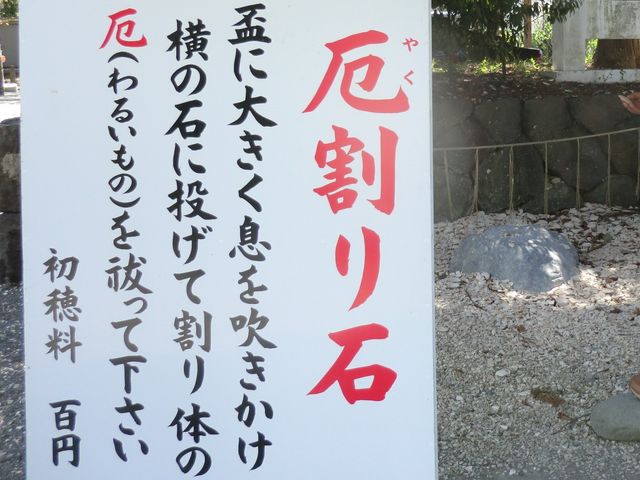 厄割り石
やく
盃に大きく息を吹きかけ
横の石に投げて割り体の
厄(わるいもの)を祓って下さい
初穂料 百円